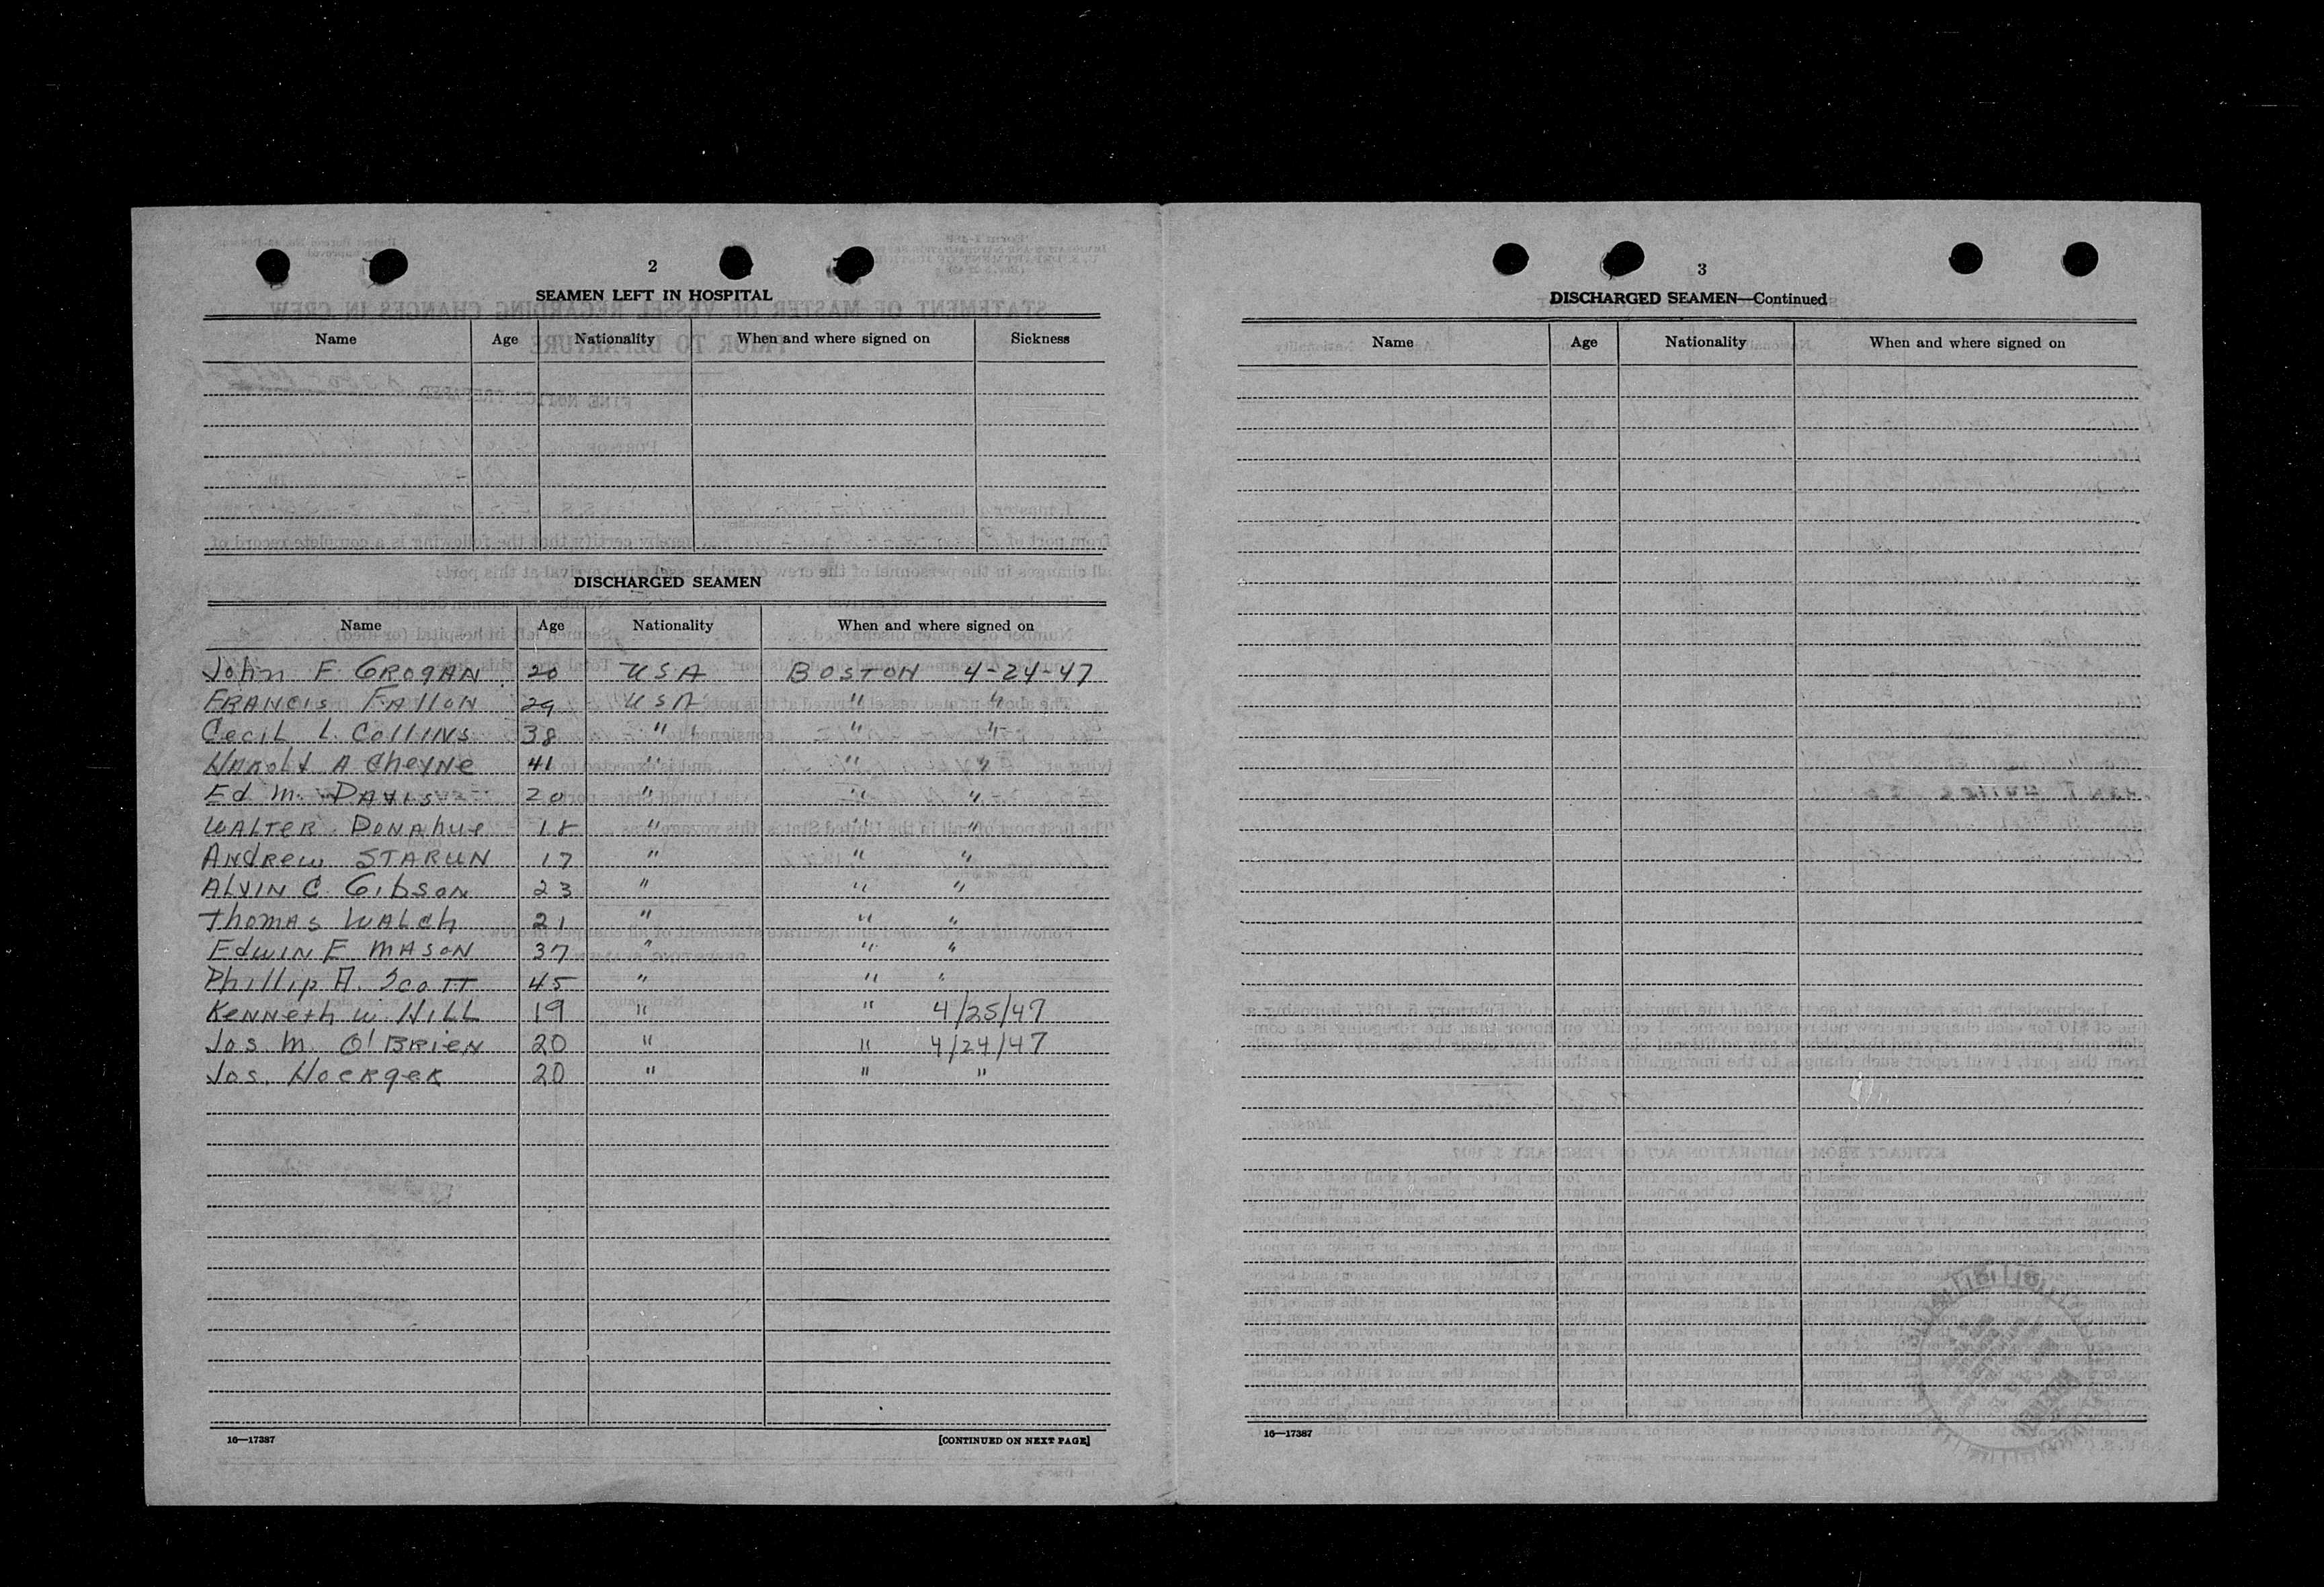 2
SEAMEN LEFT IN HOSPITAL
Name Age Nationality When and where signed on Sickness
DISCHARGED SEAMEN
Name Age Nationality When and where signed on
John F. GROGAN 20 USA BOSTON 4-24-47
FRANCIS FAllON 29 USA " "
CeciL L. COllINS 38 " " "
HAROLd A CheYNe 41 " " "
Ed M. DAVIS 20 " " "
WALTER DONAhue 18 " " "
ANdRew STARUN 17 " " "
ALVIN C. GibSON 23 " " "
ThomAS WALCh 21 " " "
EdWIN E MASON 37 " " "
Phillip A. ScoTT 45 " " "
KeNNeth W. HILL 19 " " 4/25/47
Jos M. O'BRieN 20 " " 4/24/47
Jos. HoeRgeR 20 " " "
16—17387 [CONTINUED ON NEXT PAGE]
3
DISCHARGED SEAMEN—Continued
Name Age Nationality When and where signed on
16—17387